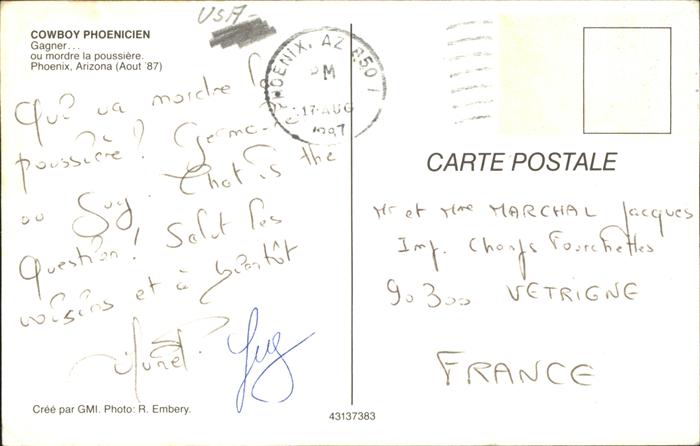 USA
COWBOY PHOENICIEN
Gagner...
ou mordre la poussière.
Phoenix, Arizona (Aout '87)
PHOENIX, AZ 850
PM
17 AUG
1987
Qui va mordre la
poussière! Germain
ou Guy. That is the
question! Salut les
voisins et à bientôt
Guy
Créé par GMI. Photo: R. Embery.
43137383
CARTE POSTALE
Mr et Mme MARCHAL Jacques
Imp. Champs Fourchettes
90300 VETRIGNE
FRANCE